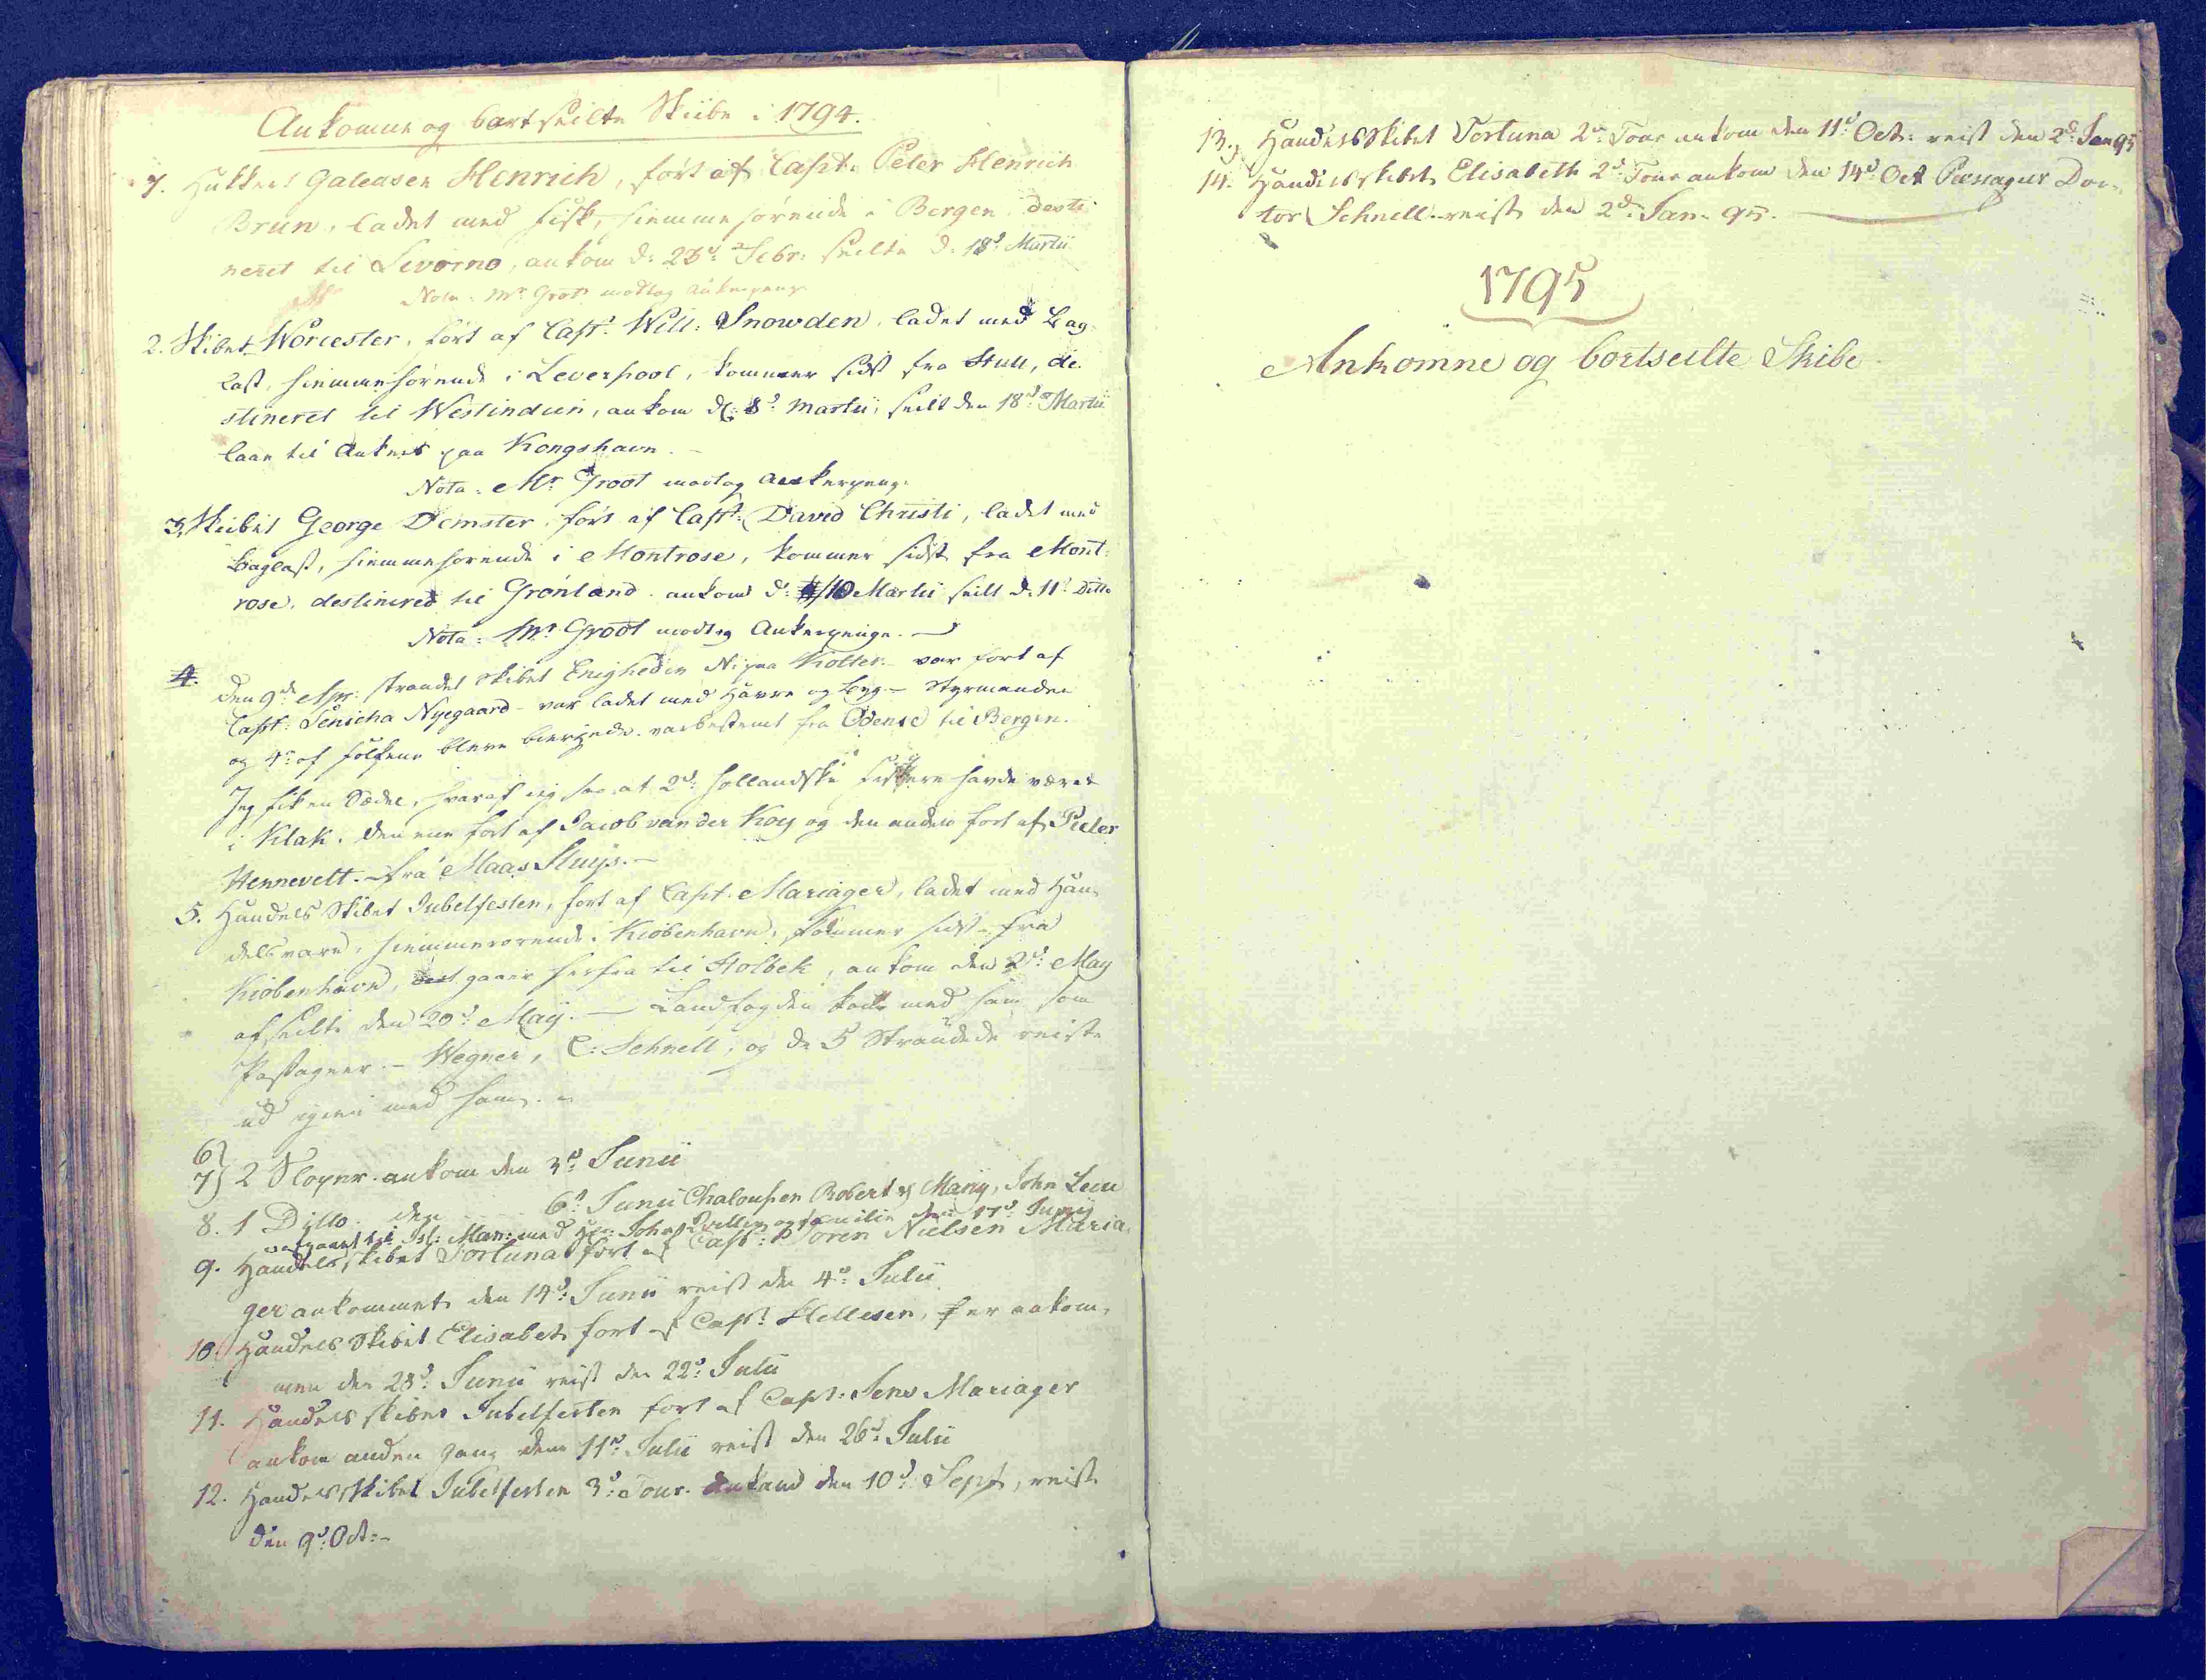 Ankomne og bortseilte Skibe i 1794.
1. Hukkert Galeasen Henrich, ført af Capt: Peter Henrich
Brun, ladet med fisk, hiemmehørende i Bergen, desti-
neret til Livorno, ankom d: 23d Febr: seilte d: 18d Martii
Nota: Mr Groot modtog Ankerpenge
2. Skibet Worcester, ført af Capt: Will: Snowden, ladet med Bag-
last, hiemmehørende i Leverpool, kommer sidst fra Hull, de-
stineret til Westindien, ankom d: 8d Martii, seilt den 18d Martii
laae til Ankers paa Kongshavn.
Nota: Mr Groot modtog Ankerpenge
3. Skibet George Demster, ført af Capt: David Christi, ladet med
Baglast, hiemmehørende i Montrose, kommer sidst fra Mont-
rose, destinered til Grønland, ankom d: 10 Martii seilt d: 11d Ditto
Nota: Mr Groot modtog Ankerpenge.
4. Den 9de Apr: strandet Skibet Enigheden paa Kolter - var ført af
Capt: Nyegaard - var ladet med Havre og Byg - Styrmanden
og 4re af Folkene bleve biergede. var bestemt fra Odense til Bergen.
Jeg fik en Sædel, hvoraf jeg saae at 2de hollandske Fiskere havde været
i Klak. den ene ført af Jacob van der Koy og den anden ført af Pieter
Hennevelt. fra Maas Sluys.
5. Handels Skibet Jubelfesten, ført af Capt. Mariager, ladet med Han-
delsvare, hiemmehørende i Kiøbenhavn, kommer sidst fra
Kiøbenhavn, gaaer herfra til Holbek, ankom den 2d May
afseilte den 20d May. - Landfogden kom med ham som
Passageer. - Wegner, C: Schnell, og de 5 Strandede reiste
ud igien med ham.
6)
7) 2 Sloper ankom den 3d Junii
8. 1 Ditto den 6d Junii Chaloupen Robert & Mary, John
til Isl: Man: med Hr: John og familie den 17d Junij
9. Handelsskibet Fortuna ført af Capt: Søren Nielsen Maria-
ger ankommet den 14d Junii reist den 4d Julii
10. Handels Skibet Elisabet ført af Capt: Hellesen, er ankom-
men den 28d Junii reist den 22d Julii
11. Handelsskibet Jubelfesten ført af Capt: Jens Mariager
ankom anden Gang den 11d Julii reist den 26d Julii
12. Handelsskibet Jubelfesten 3d Tour. ankom den 10d Sept, reist
den 9d Oct:
13. Handelsskibet Fortuna 2d Tour ankom den 11d Oct: reist den 2d Jan 95
14. Handelsskibet Elisabeth 2d Tour ankom den 14d Oct Passageer Doc-
tor Schnell reist den 2d Jan. 95.
1795
Ankomne og bortseilte Skibe